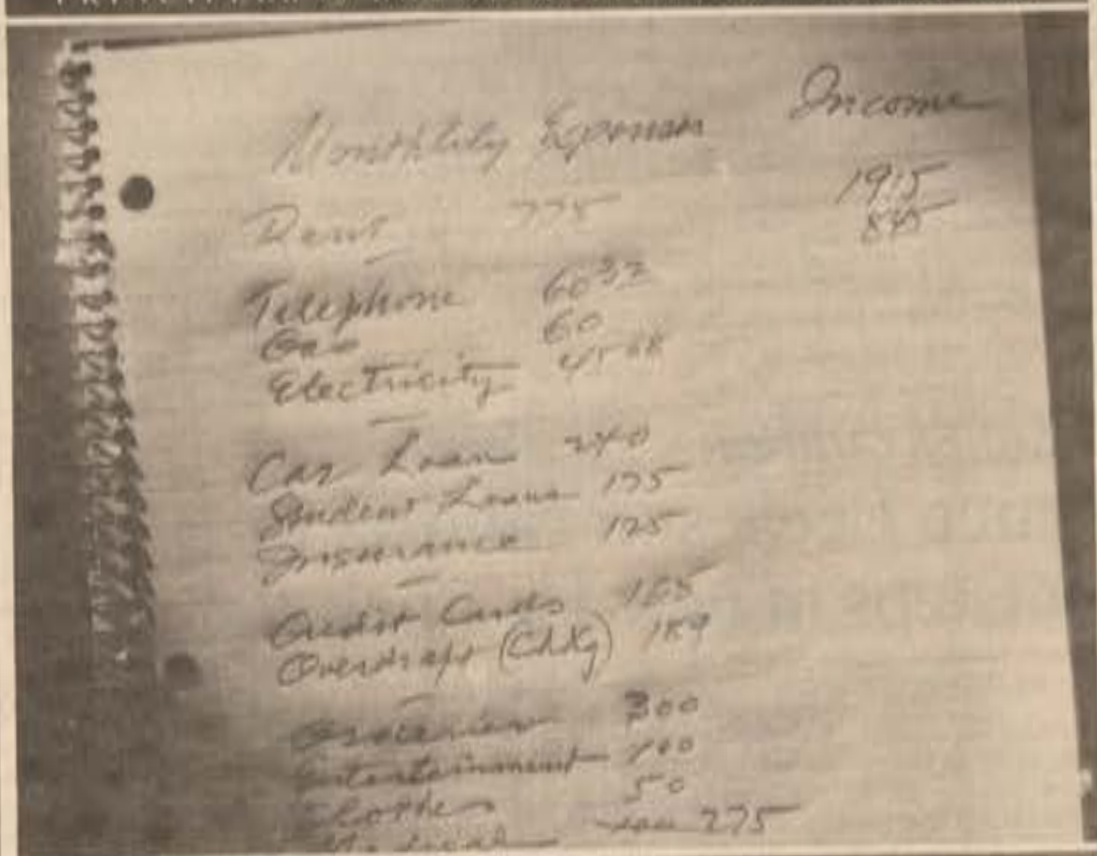 Monthlily Expenses Income
Rent 775 1915
845
Telephone 60 32
Gas 60
Electricity 45
Car Loan 240
Student Loans 175
Insurance 125
Credit Cards 165
Overdraft (Chkg) 189
Groceries 300
Entertainment 100
Clothes 50
Medical 275